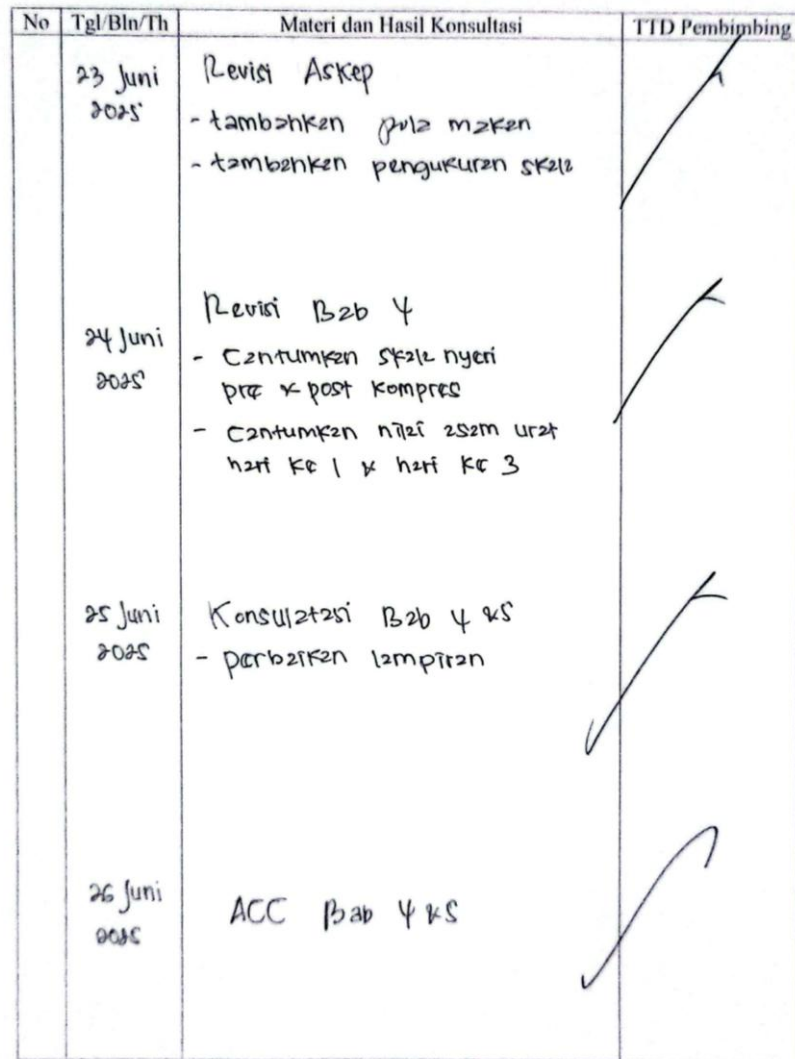 No Tgl/Bln/Th Materi dan Hasil Konsultasi TTD Pembimbing
23 Juni
2025
Revisi Askep
- tambahkan pola makan
- tambahkan pengukuran skala
24 Juni
2025
Revisi Bab 4
- Cantumkan skala nyeri
pre & post kompres
- Cantumkan nilai asam urat
hari ke 1 & hari ke 3
25 Juni
2025
Konsultatasi Bab 4 & 5
- perbaikan lampiran
26 Juni
2025
ACC Bab 4 & 5